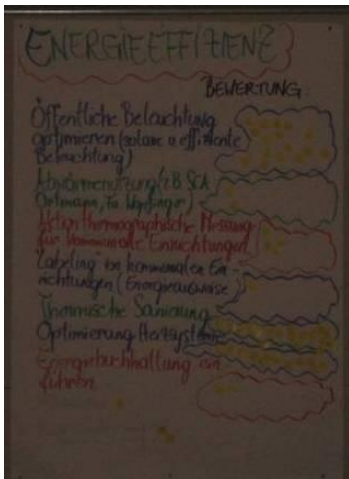 ENERGIEEFFIZIENZ
BEWERTUNG
Öffentliche Beleuchtung
optimieren (solare u effiziente
Beleuchtung)
Abwärmenutzung (z.B. SCA
Ortmann, Fa. Wopfinger)
Aktion thermographische Messung
für kommunale Einrichtungen
"Labeling" von kommunalen Ein
richtungen (Energieausweise
Thermische Sanierung
Optimierung Heizsysteme
Energiebuchhaltung ein
führen